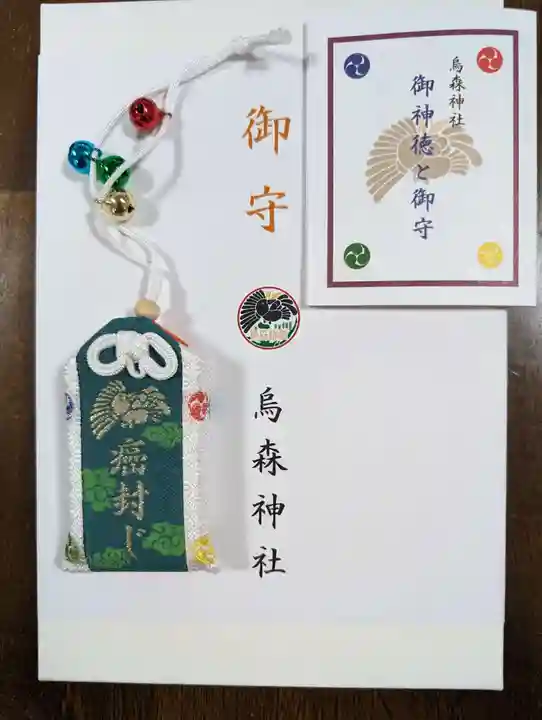 御守
烏森神社
烏森神社
御神徳と御守
癌封じ